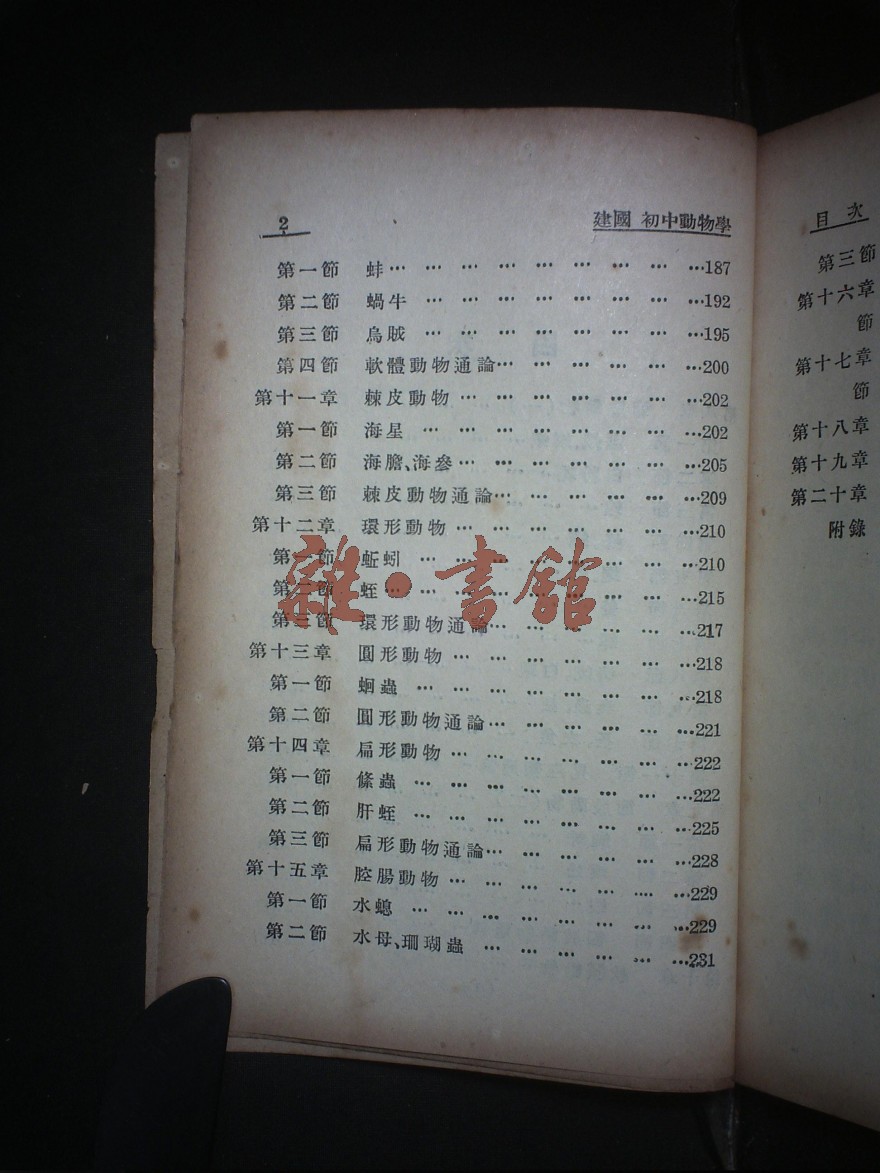 2 建國 初中動物學
第一節 蚌… … … … … … … … …187
第二節 蝸牛 … … … … … … … …192
第三節 烏賊 … … … … … … … …195
第四節 軟體動物通論… … … … … …200
第十一章 棘皮動物 … … … … … … …202
第一節 海星 … … … … … … … …202
第二節 海膽、海參… … … … … … …205
第三節 棘皮動物通論… … … … … …209
第十二章 環形動物 … … … … … … …210
第一節 蚯蚓 … … … … … … … …210
第二節 蛭… … … … … … … … …215
第三節 環形動物通論… … … … … …217
第十三章 圓形動物 … … … … … … …218
第一節 蛔蟲 … … … … … … … …218
第二節 圓形動物通論… … … … … …221
第十四章 扁形動物 … … … … … … …222
第一節 條蟲 … … … … … … … …222
第二節 肝蛭 … … … … … … … …225
第三節 扁形動物通論… … … … … …228
第十五章 腔腸動物 … … … … … … …229
第一節 水螅 … … … … … … … …229
第二節 水母、珊瑚蟲 … … … … … …231
雜·書館
目次
第三節
第十六章
節
第十七章
節
第十八章
第十九章
第二十章
附錄